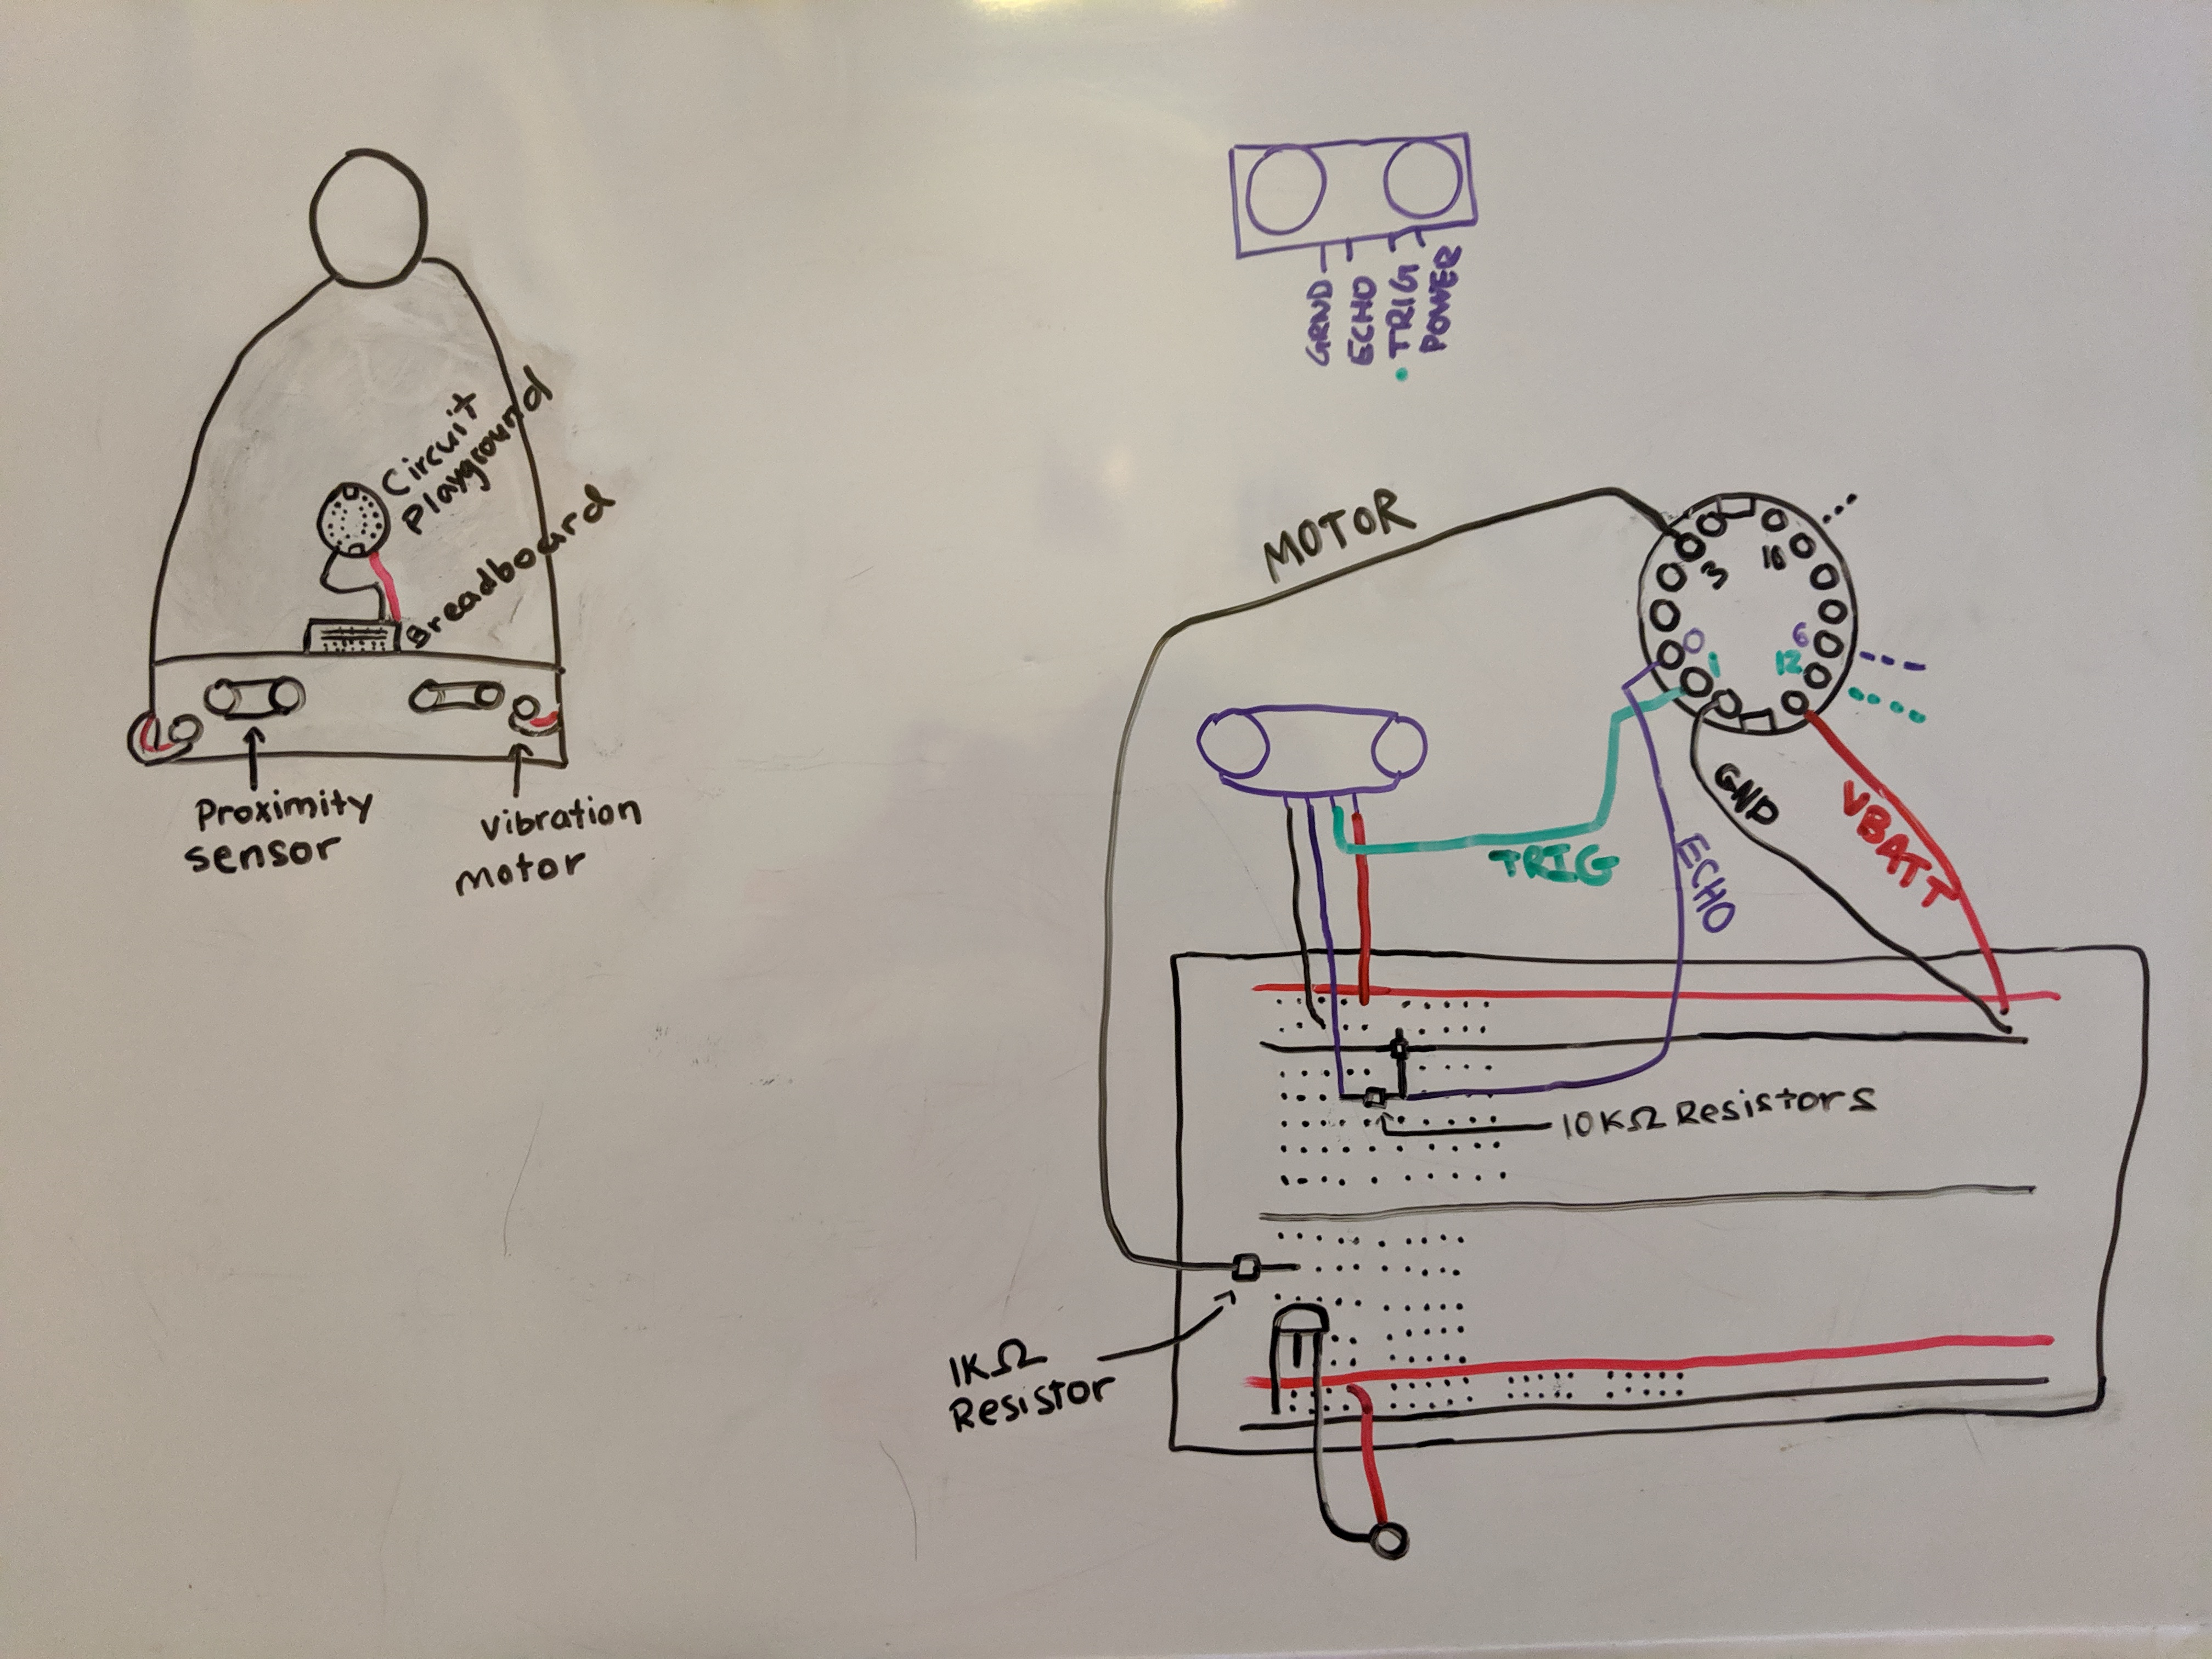 Circuit
Playground
Breadboard
Proximity
sensor
vibration
motor
GRND
ECHO
TRIG
POWER
MOTOR
3
10
0
1
6
12
GND
VBATT
TRIG
ECHO
10KΩ Resistors
1KΩ
Resistor